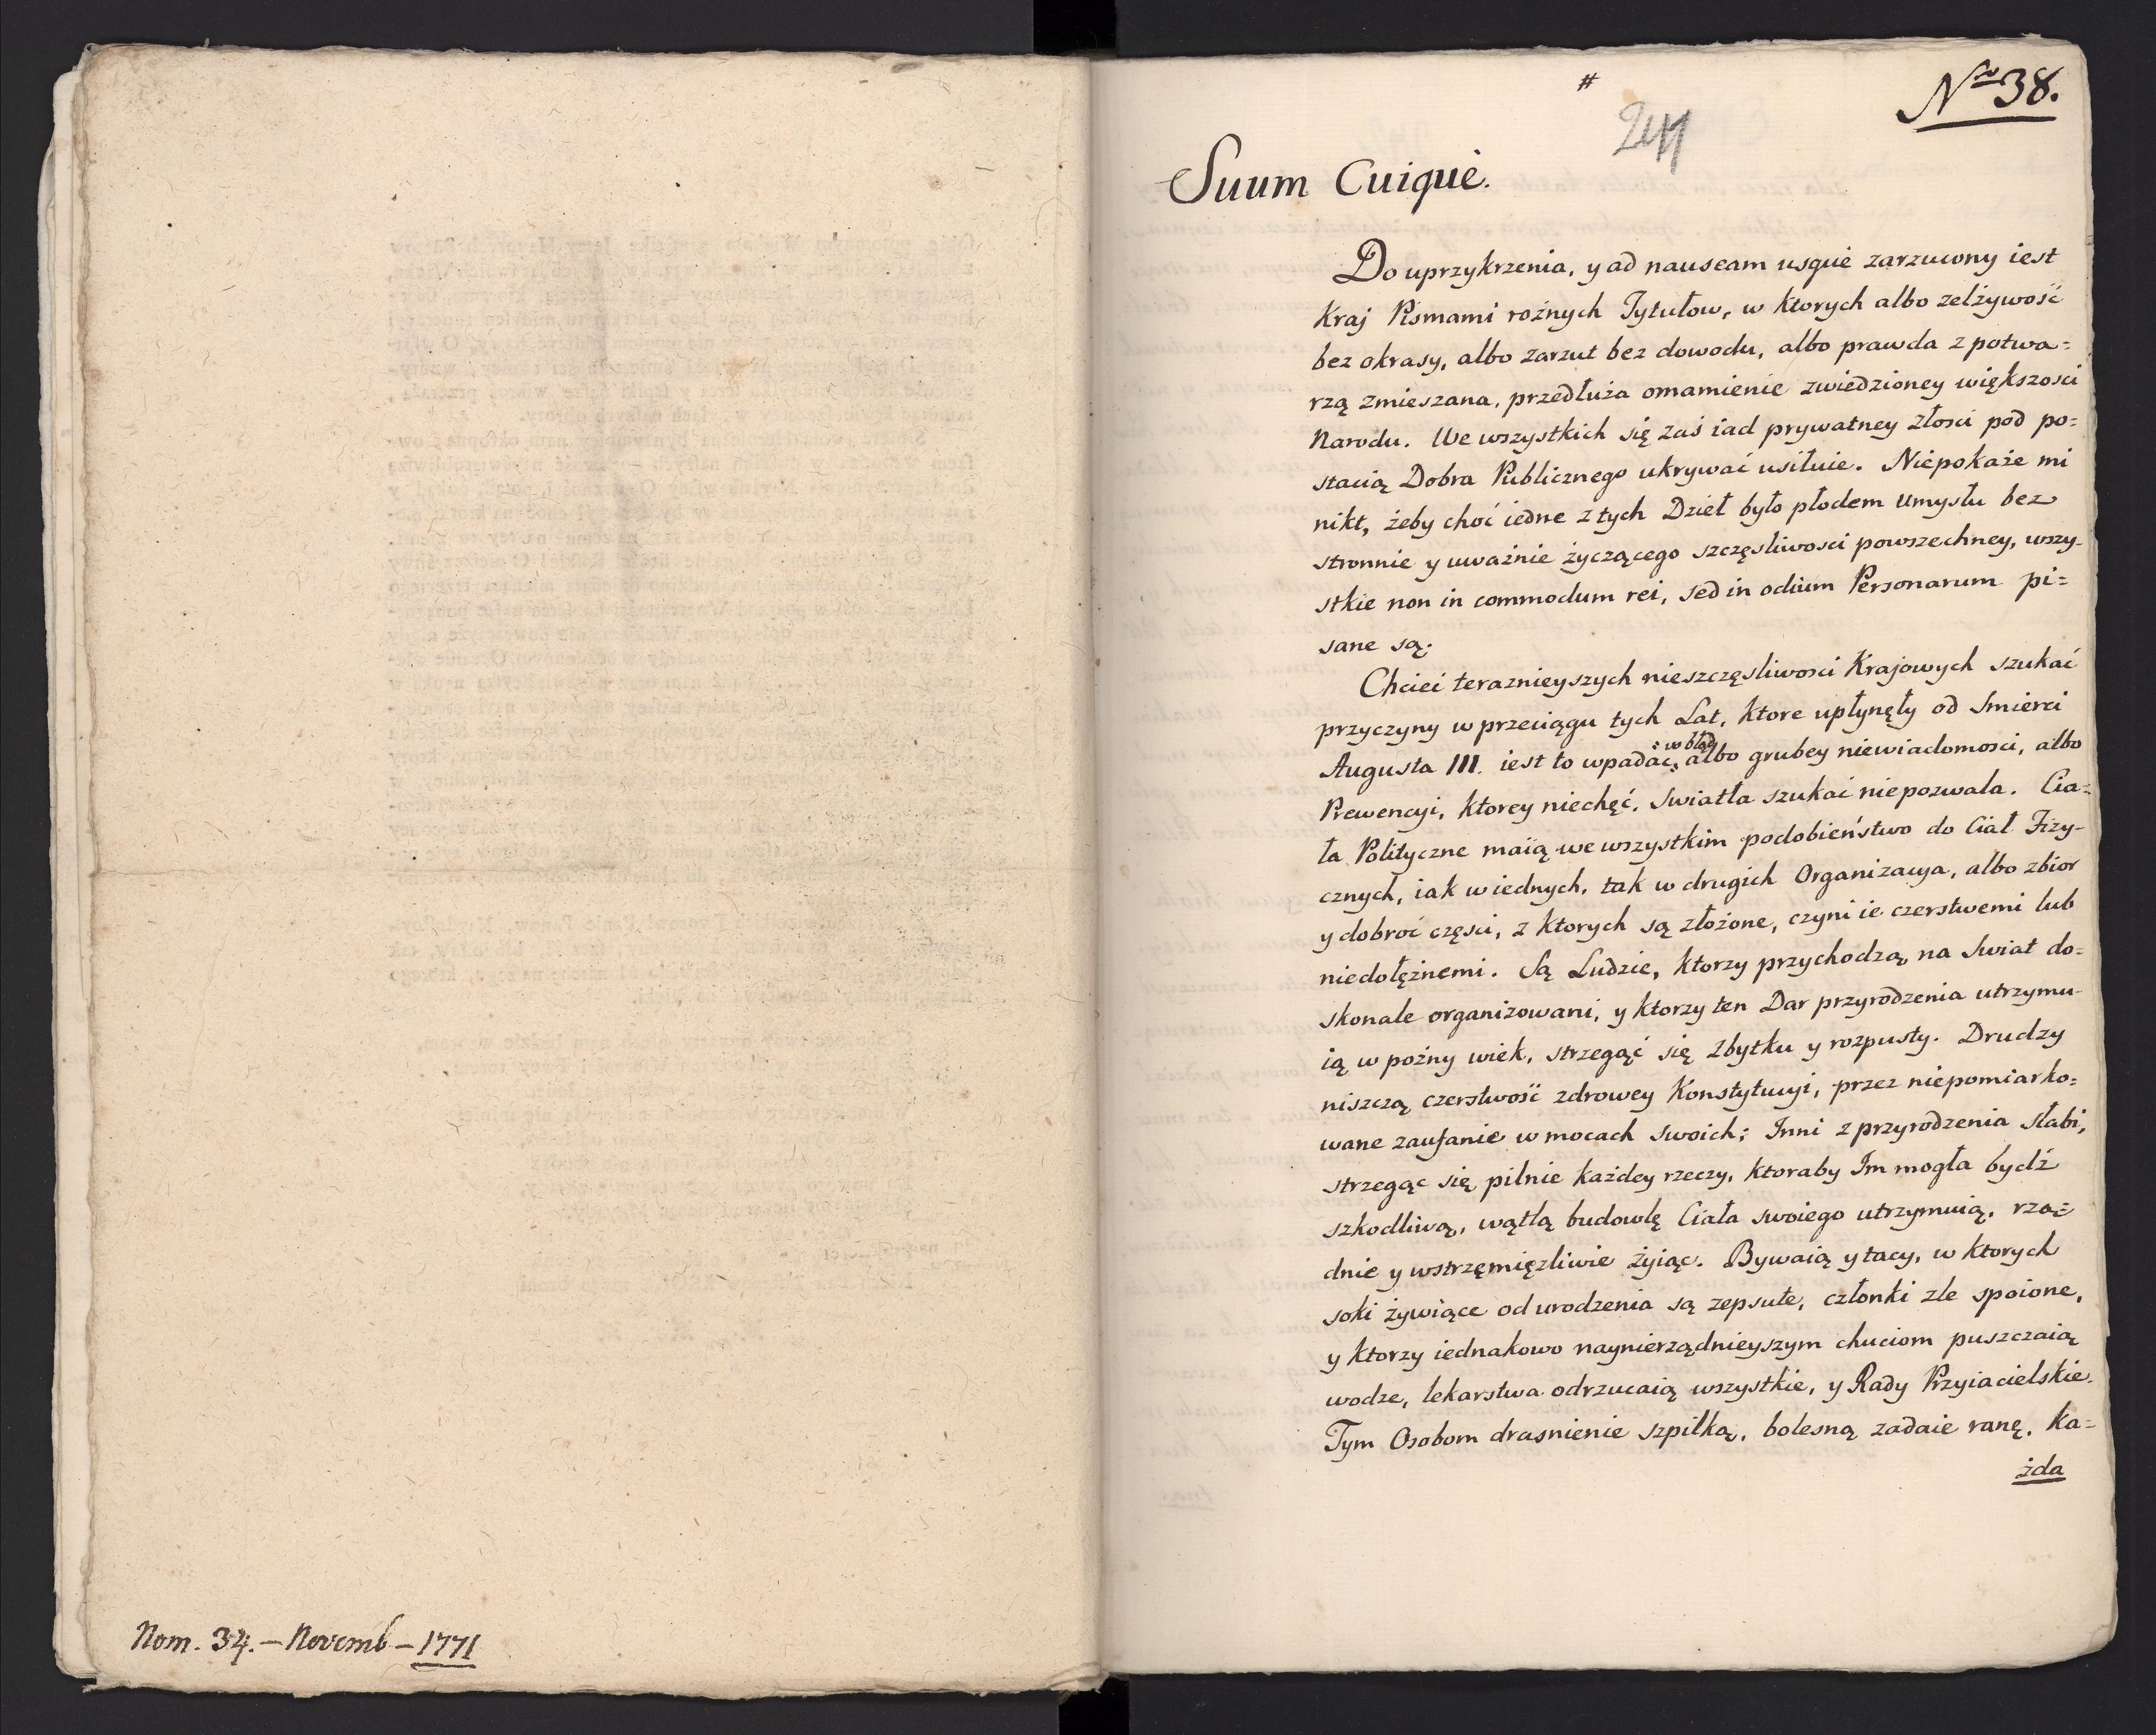 Nom. 34. – Novemb – 1771
#
Nro 38.
Suum Cuique.
Do uprzykrzenia, y ad nauseam usque zarzucony iest
Kraj Pismami rożnych Tytułow, w ktorych albo zelżywość
bez okrasy, albo zarzut bez dowodu, albo prawda z potwa=
rzą zmieszana, przedłuża omamienie zwiedzioney większosci
Narodu. We wszystkich się zaś iad prywatney złosci pod po=
stacią Dobra Publicznego ukrywać usiłuie. Niepokaże mi
nikt, żeby choć iedne z tych Dzieł było płodem Umysłu bez
stronnie y uważnie życzącego szczęsliwosci powszechney, wszy-
stkie non in commodum rei, sed in odium Personarum pi=
sane są.
Chcieć teraznieyszych nieszczęsliwosci Krajowych szukać
przyczyny w przeciągu tych Lat, ktore upłynęły od Smierci
Augusta III. iest to wpadać w błąd albo grubey niewiadomosci, albo
Prewencyi, ktorey niechęć, Swiatła szukać niepozwala. Cia=
ła Polityczne maią we wszystkim podobieństwo do Ciał Fizy-
cznych, iak w iednych, tak w drugich Organizacya, albo zbior
y dobroć częsci, z ktorych są złożone, czyni ie czerstwemi lub
niedołężnemi. Są Ludzie, ktorzy przychodzą na Swiat do=
skonale organizowani, y ktorzy ten Dar przyrodzenia utrzymu-
ią w pożny wiek, strzegąć się Zbytku y rozpusty. Drudzy
niszczą czerstwość zdrowey Konstytucyi, przez niepomiarko=
wane zaufanie w mocach swoich; Inni z przyrodzenia słabi,
strzegąc się pilnie każdey rzeczy, ktoraby Im mogła bydź
szkodliwą, wątłą budowlę Ciała swoiego utrzymuią, rzą=
dnie y wstrzęmięzliwie żyiąc. Bywaią y tacy, w ktorych
soki żywiące od urodzenia są zepsute, członki zle spoione,
y ktorzy iednakowo naynierządnieyszym chuciom puszczaią
wodze, lekarstwa odrzucaią wszystkie, y Rady Przyiacielskie.
Tym Osobom drasnienie szpilką, bolesną zadaie ranę, ka=
żda